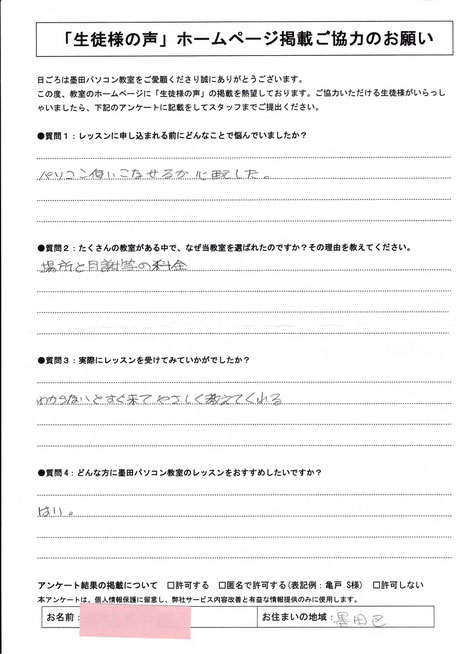 「生徒様の声」ホームページ掲載ご協力のお願い
日ごろは墨田パソコン教室をご愛顧くださり誠にありがとうございます。
この度、教室のホームページに「生徒様の声」の掲載を熱望しております。ご協力いただける生徒様がいらっし
ゃいましたら、下記のアンケートに記載をしてスタッフまでご提出ください。
●質問１：レッスンに申し込まれる前にどんなことで悩んでいましたか？
パソコン使いこなせるか心配した。
●質問２：たくさんの教室がある中で、なぜ当教室を選ばれたのですか？その理由を教えてください。
場所と月謝等の料金
●質問３：実際にレッスンを受けてみていかがでしたか？
わからないとすぐ来てやさしく教えてくれる
●質問４：どんな方に墨田パソコン教室のレッスンをおすすめしたいですか？
はい。
アンケート結果の掲載について　□許可する　□匿名で許可する(表記例：亀戸 S様)　□許可しない
本アンケートは、個人情報保護に留意し、弊社サービス内容改善と有益な情報提供のみに使用します。
お名前：　お住まいの地域：墨田区